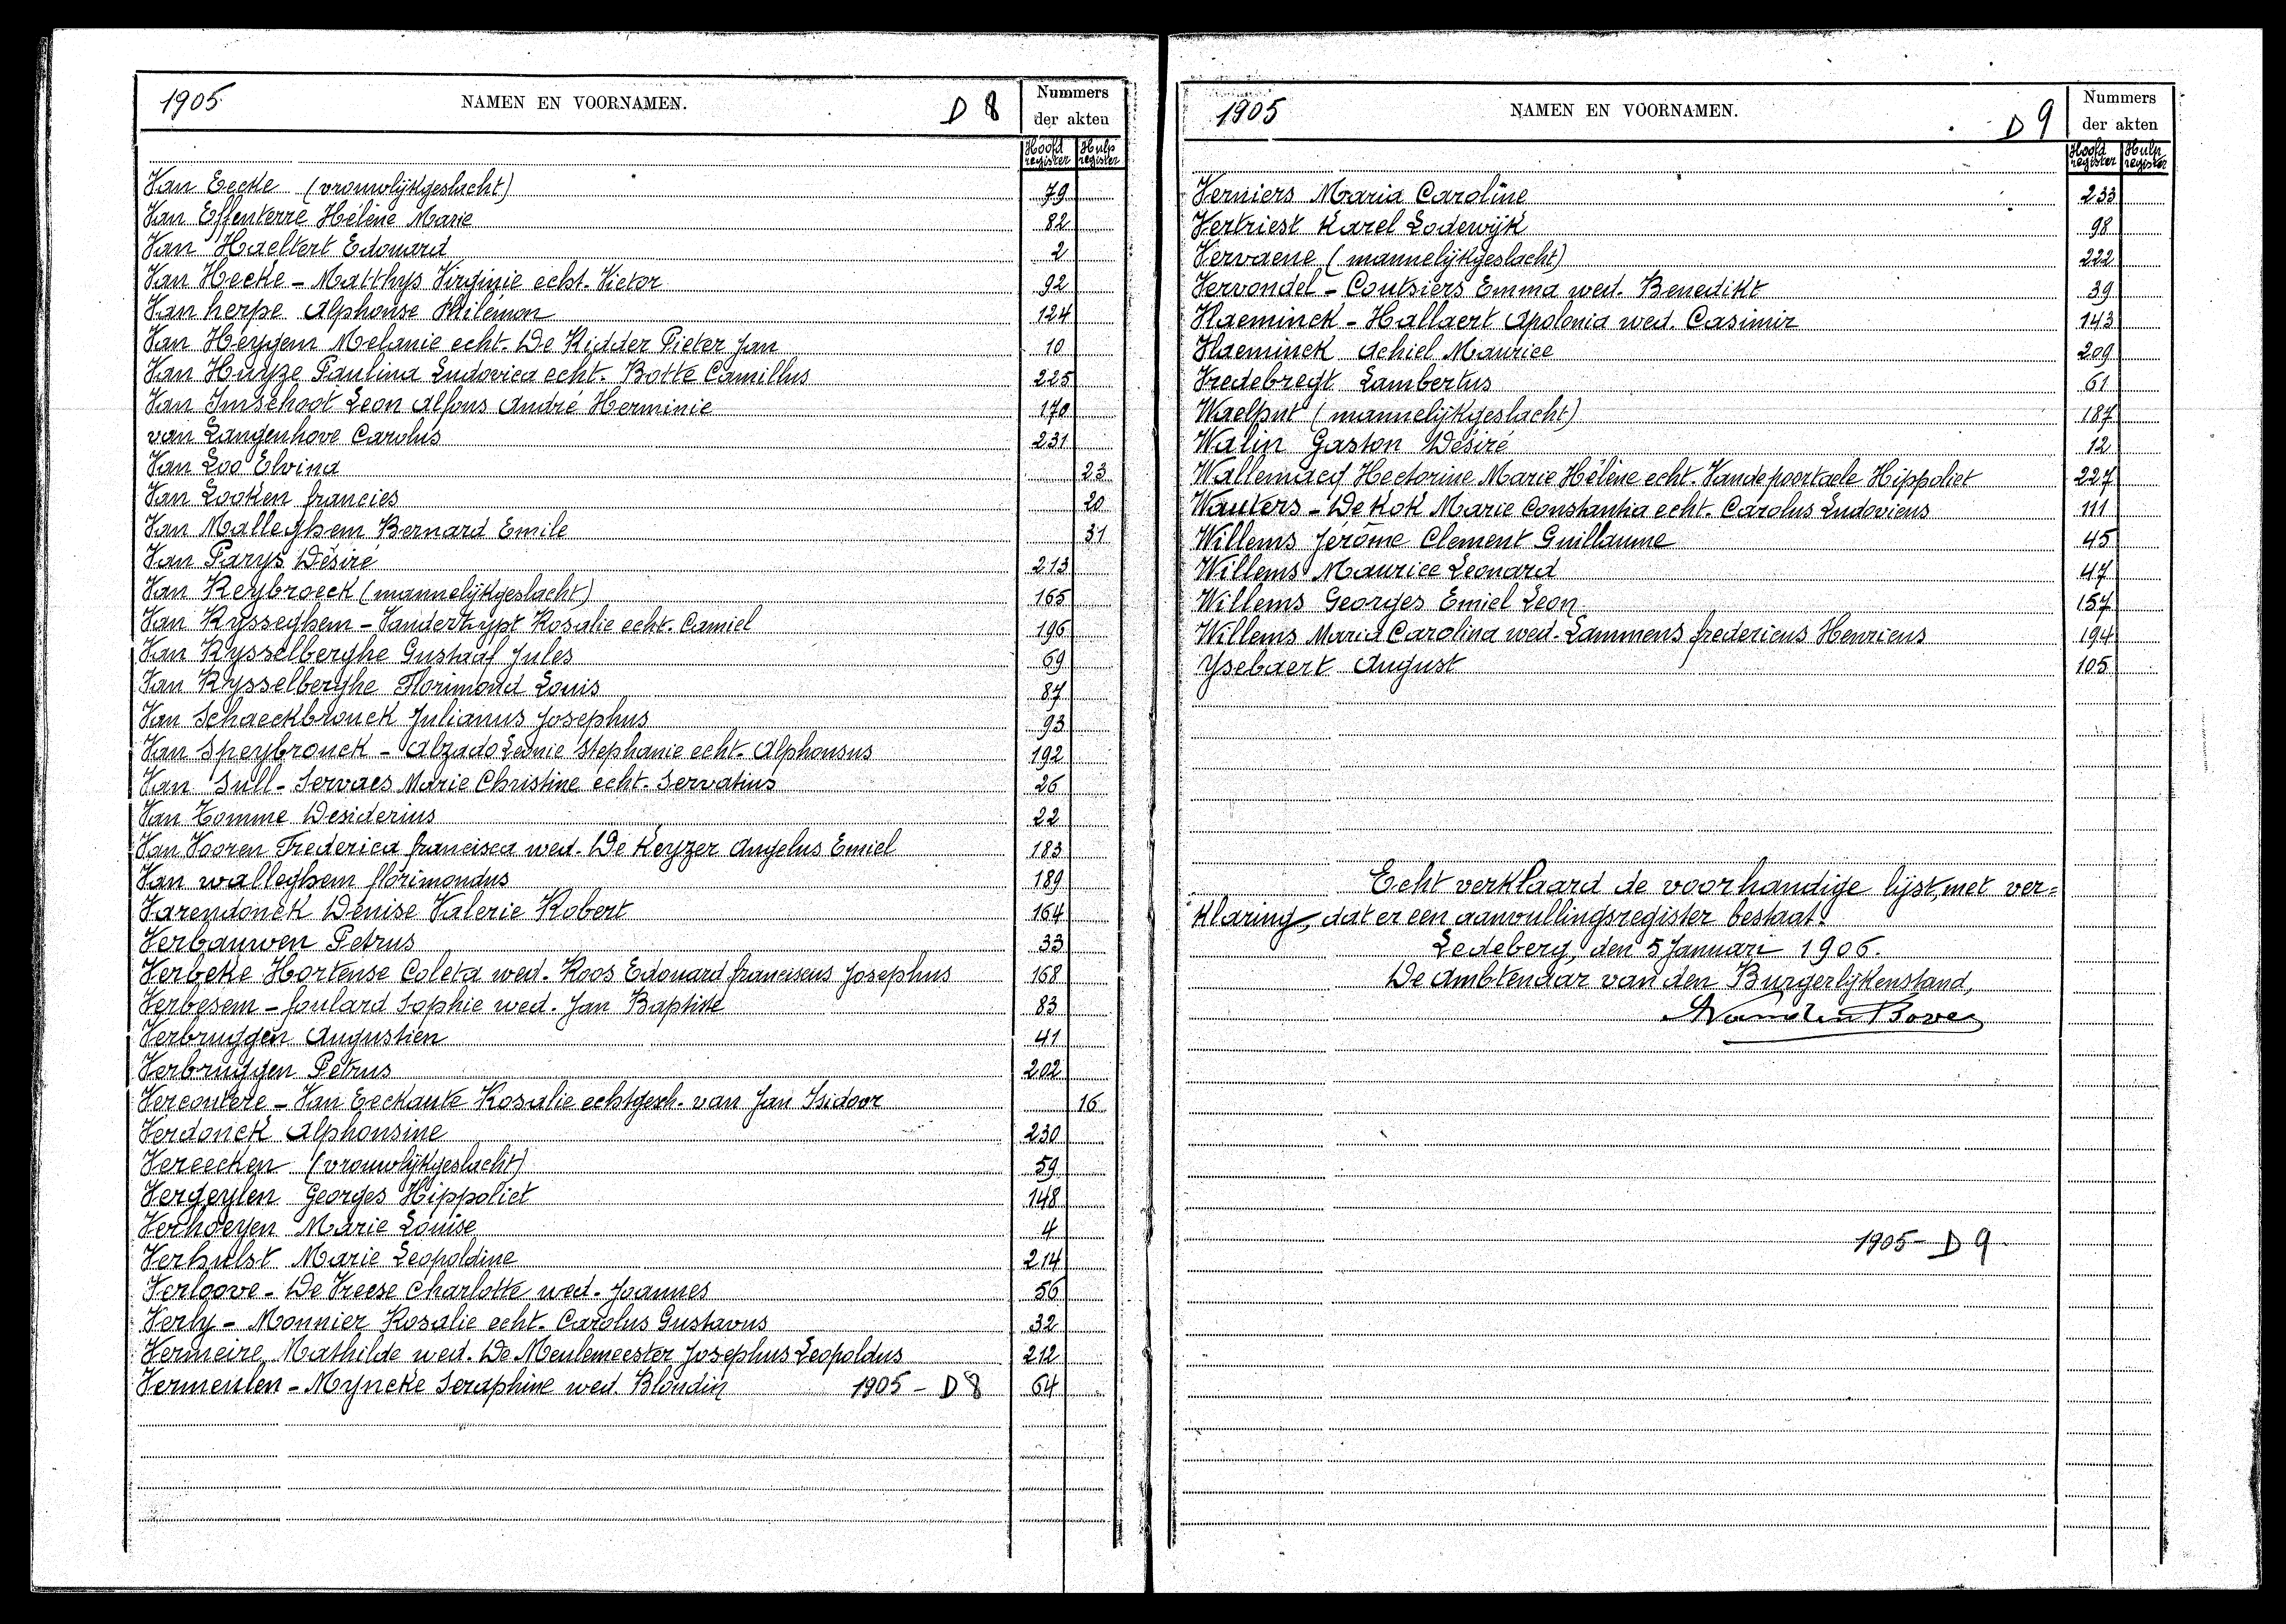 1905
NAMEN EN VOORNAMEN.
D 8
Nummers
der akten
Hoofd register
Hulp register
Van Eecke (vrouwlijkgeslacht) 79
Van Effenterre Hélène Marie 82
Van Haeltert Edouard 2
Van Hecke - Matthys Virginie echt. Victor 92
Van herpe Alphonse Philémon 124
Van Heygem Melanie echt. De Ridder Pieter Jan 10
Van Huyze Paulina Ludovica echt. Botte Camillus 225
Van Imschoot Leon Alfons André Herminie 170
van Langenhove Carolus 231
Van Loo Elvina 23
Van Looken francies 20
Van Malleghem Bernard Emile 31
Van Parys Désiré 213
Van Reybroeck (mannelijkgeslacht) 165
Van Rysseghem - Vanderhypt Rosalie echt. Camiel 196
Van Rysselberghe Gustaaf Jules 69
Van Rysselberghe Florimond Louis 87
Van Schaeckbrouck Julianus Josephus 93
Van Speybrouck - Alzado Leonie Stephanie echt. Alphonsus 192
Van Sull - Servaes Marie Christine echt. Servatius 26
Van Tomme Desiderius 22
Van Vooren Frederica francisca wed. De Keyzer Angelus Emiel 183
Van walleghem florimondus 189
Varendonck Denise Valerie Robert 164
Verbauwen Petrus 33
Verbeke Hortense Coleta wed. Roos Edouard franciscus Josephus 168
Verbesem - foulard Sophie wed. Jan Baptiste 83
Verbruggen Augustien 41
Verbruggen Petrus 202
Vercoutere - Van Eeckaute Rosalie echtgesch. van Jan Isidoor 16
Verdonck Alphonsine 230
Vereecken (vrouwlijkgeslacht) 59
Vergeylen Georges Hippoliet 148
Verhoeyen Marie Louise 4
Verhulst Marie Leopoldine 214
Verloove - De Vreese Charlotte wed. Joannes 56
Verly - Monnier Rosalie echt. Carolus Gustavus 32
Vermeire Mathilde wed. De Meulemeester Josephus Leopoldus 212
Vermeulen - Myncke Seraphine wed. Blondin 1905 - D 8 64
1905
NAMEN EN VOORNAMEN.
D 9
Nummers
der akten
Hoofd register
Hulp register
Verniers Maria Caroline 233
Vertriest Karel Lodewijk 98
Vervaene (mannelijkgeslacht) 222
Vervondel - Coutsiers Emma wed. Benedikt 39
Vlaeminck - Hallaert Apolonia wed. Casimir 143
Vlaeminck Achiel Maurice 209
Vredebregt Lambertus 61
Waelput (mannelijkgeslacht) 187
Walin Gaston Désiré 12
Wallemacq Hectorine Marie Hélène echt. Vandepoortaele Hippoliet 227
Wauters - De Kok Marie Constantia echt. Carolus Ludovicus 111
Willems Jérôme Clement Guillaume 45
Willems Maurice Leonard 47
Willems Georges Emiel Leon 157
Willems Maria Carolina wed. Lammens fredericus Henricus 194
Ysebaert August 105
Echt verklaard de voorhandige lijst, met ver=
klaring, dat er een aanvullingsregister bestaat.
Ledeberg, den 5 Januari 1906.
De Ambtenaar van den Burgerlijkenstand,
1905 - D 9